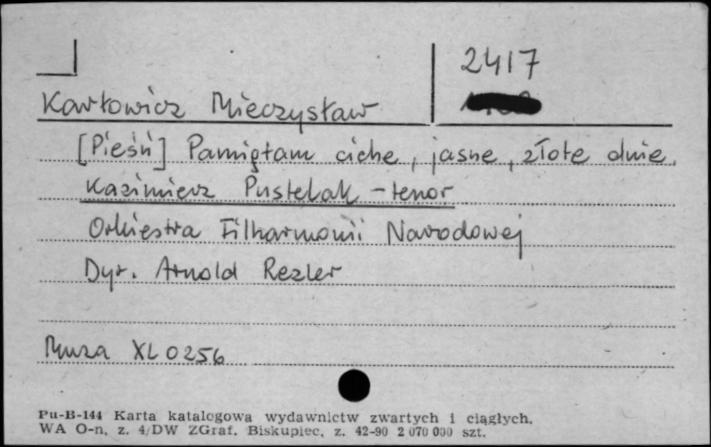 2417
Karłowicz Mieczysław
[Pieśń] Pamiętam ciche, jasne, złote dnie.
Kazimierz Pustelak - tenor
Orkiestra Filharmonii Narodowej
Dyr. Arnold Rezler
Muza XL 0256
Pu-B-144 Karta katalogowa wydawnictw zwartych i ciągłych.
WA O-n, z. 4/DW ZGraf. Biskupiec, z. 42-90 2 070 000 szt.